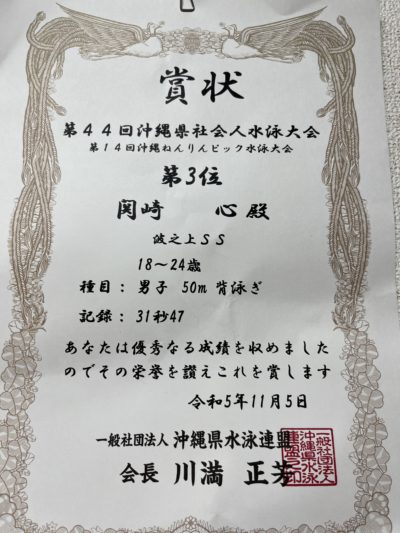 賞状
第44回沖縄県社会人水泳大会
第14回沖縄ねんりんピック水泳大会
第3位
関崎 心殿
波之上SS
18～24歳
種目：男子 50m 背泳ぎ
記録：31秒47
あなたは優秀なる成績を収めました
のでその栄誉を讃えこれを賞します
令和5年11月5日
一般社団法人 沖縄県水泳連盟
会長 川満 正芳
一般社団法人
沖縄県水泳
連盟之印